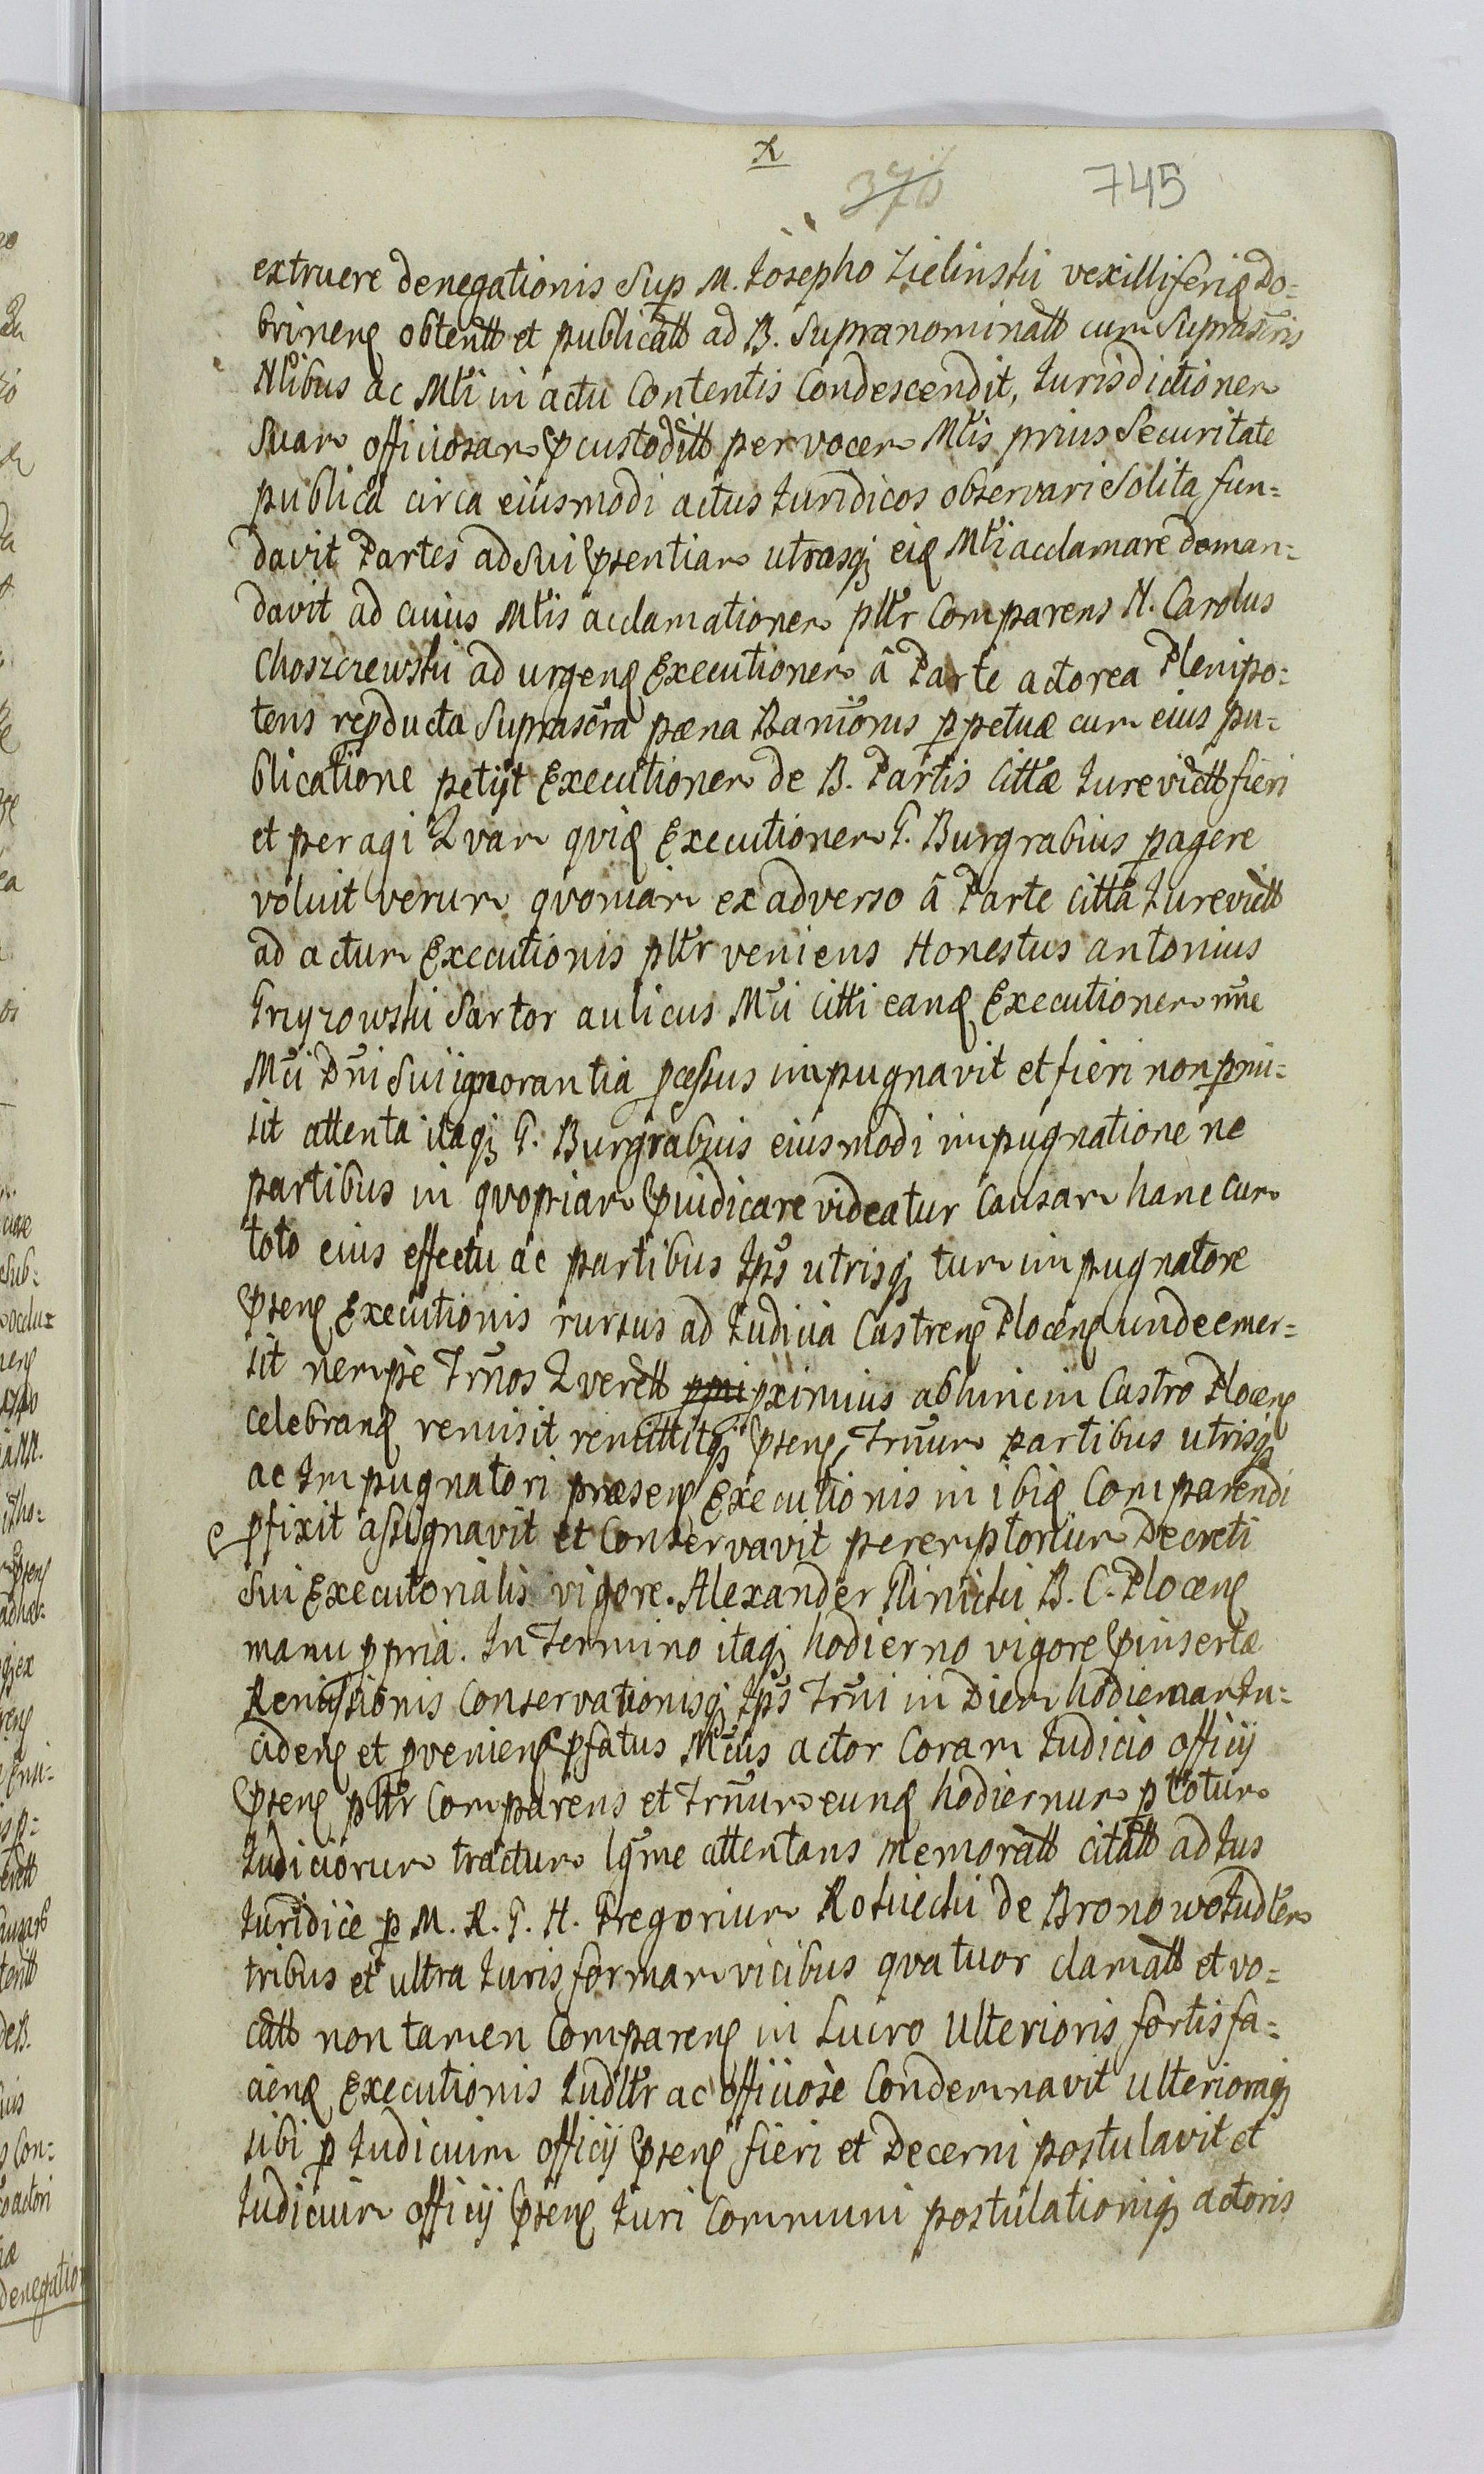 x
376 745
extruere denegationis Sup M. Josepho Zielinski vexilliferiq Do=
brinenς obtentt et publicatt ad B. Supranominatt cum Suprascris
Nlibus ac Mtri in actu Contentis Condescendit, Jurisdictionem
Suam officiosam pcustoditt per vocem Mtris prius Securitate
publica circa eiusmodi actus Juridicos observari Solita fun=
davit Partes ad Sui psentiam utrasq eiq Mtri acclamare deman=
davit ad cuius Mtris acclamationem pltr Comparens N. Carolus
Choszczewski ad urgenq Executionem â Parte actorea Plenipo=
tens repducta Suprascra pœna Banionis ppetuæ cum eius pu=
blicatione petijt Executionem de B. Partis Cittæ Jurevictt fieri
et peragi Qvam qviq Executionem G. Burgrabius pagere
voluit verum qvoniam ex adverso â Parte citta Jurevictt
ad actum Executionis pltr veniens Honestus antonius
Gryzowski Sartor aulicus Mci Citti eanq Executionem rne
Mci Dni Sui ignorantia pcessus impugnavit et fieri non pmi=
sit attenta itaq G. Burgrabius eiusmodi impugnatione ne
partibus in qvopiam pjudicare videatur Causam hanc cum
toto eius effectu ac partibus Jps utrisq tum impugnatore
psenς Executionis rursus ad Judicia Castrenς Plocenς unde emer=
sit nempè Trnos Qverett ppri pximius abhinc in Castro Plocenς
celebranq remisit remittitq psenς, Trnum partibus utrisq
ac Impugnatori præsenς Executionis in ibiq Comparendi
pfixit assignavit et Conservavit peremptorium Decreti
Sui Executorialis vigore. Alexander B. C. Plocenς
manu ppria. In Termino itaq hodierno vigore pinsertæ
Remissionis Conservationisq Jps Trni in Diem hodiernam In=
cidenς et pvenienς pfatus Mcus actor Coram Judicio officij
psenς pltr Comparens et Trnum eunq hodiernum p totum
Judiciorum tractum lgme attentans memoratt citatt ad Jus
Juridice p M. R. G. H. Gregorium de Bronowo Judlem
tribus et ultra Juris formam vicibus qvatuor clamatt et vo=
catt non tamen Comparenς in Lucro Ulterioris, fortis fa=
cienq Executionis Judltr ac officiosè Condemnavit ulterioraq
sibi p Judicium officij psenς fieri et Decerni postulavit et
Judicium officij psenς Juri Communi postulationiq actoris